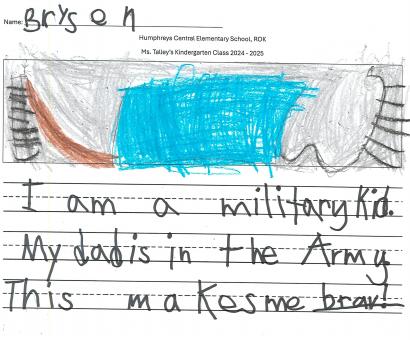 Name: Brysen
Humphreys Central Elementary School, ROK
Ms. Talley's Kindergarten Class 2024 - 2025
I am a military kid.
My dad is in the Army
This makes me brav!